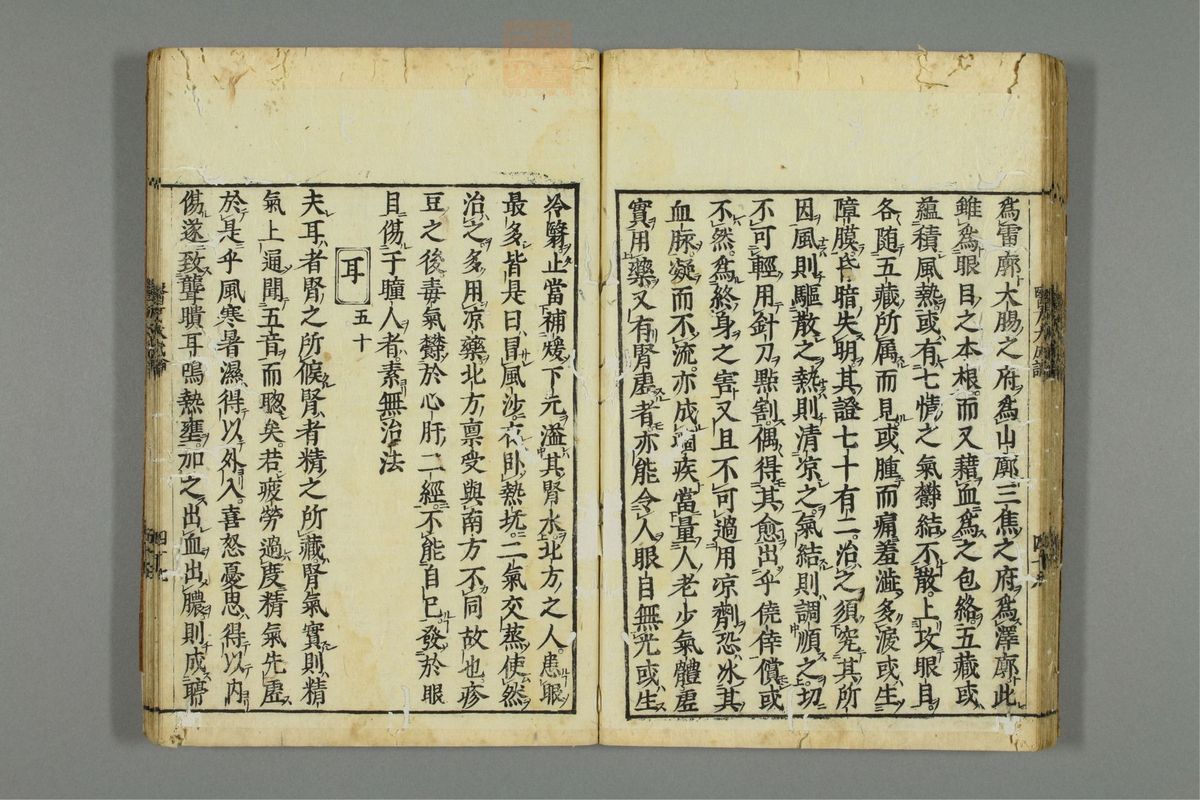 爲雷廓大腸之府爲山廓三焦之府爲澤廓此
雖爲眼目之本根而又藉血爲之包絡五藏或
蘊積風熱或有七情之氣欝結不散上攻眼目
各随五藏所属而見或腫而痛羞澁多淚或生
障膜昏暗失明其證七十有二治之須究其所
因風則驅散之熱則清凉之氣結則調順之切
不可輕用針刀㸃割偶得其愈出乎僥倖償或
不然爲終身之害又且不可過用凉劑恐冰其
血脉凝而不流亦成痼疾當量人老少氣體虛
實用藥又有腎虛者亦能令人眼目無光或生
冷翳止當補煖下元溢其腎水北方之人患眼
最多皆是日冒風沙夜卧熱炕二氣交蒸使然
治之多用凉藥北方禀受與南方不同故也疹
豆之後毒氣欝於心肝二經不能自已發於眼
目傷于瞳人者素無治法
耳 五十
夫耳者腎之所候腎者精之所藏腎氣實則精
氣上通聞五音而聰矣若疲勞過度精氣先虛
於是乎風寒暑濕得以外入喜怒憂思得以内
傷遂致聾聵耳鳴熱壅加之出血出膿則成聤